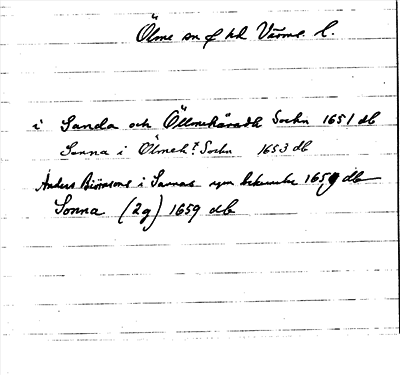 Ölme sn o hd Värml. l.
i Sanda och Öllmehäradh Sochn 1651 db
Sonna i Ölmeh? Sochn 1653 db
Anders Biörsons i Sannas 1659 db
Sonna (2g) 1659 db